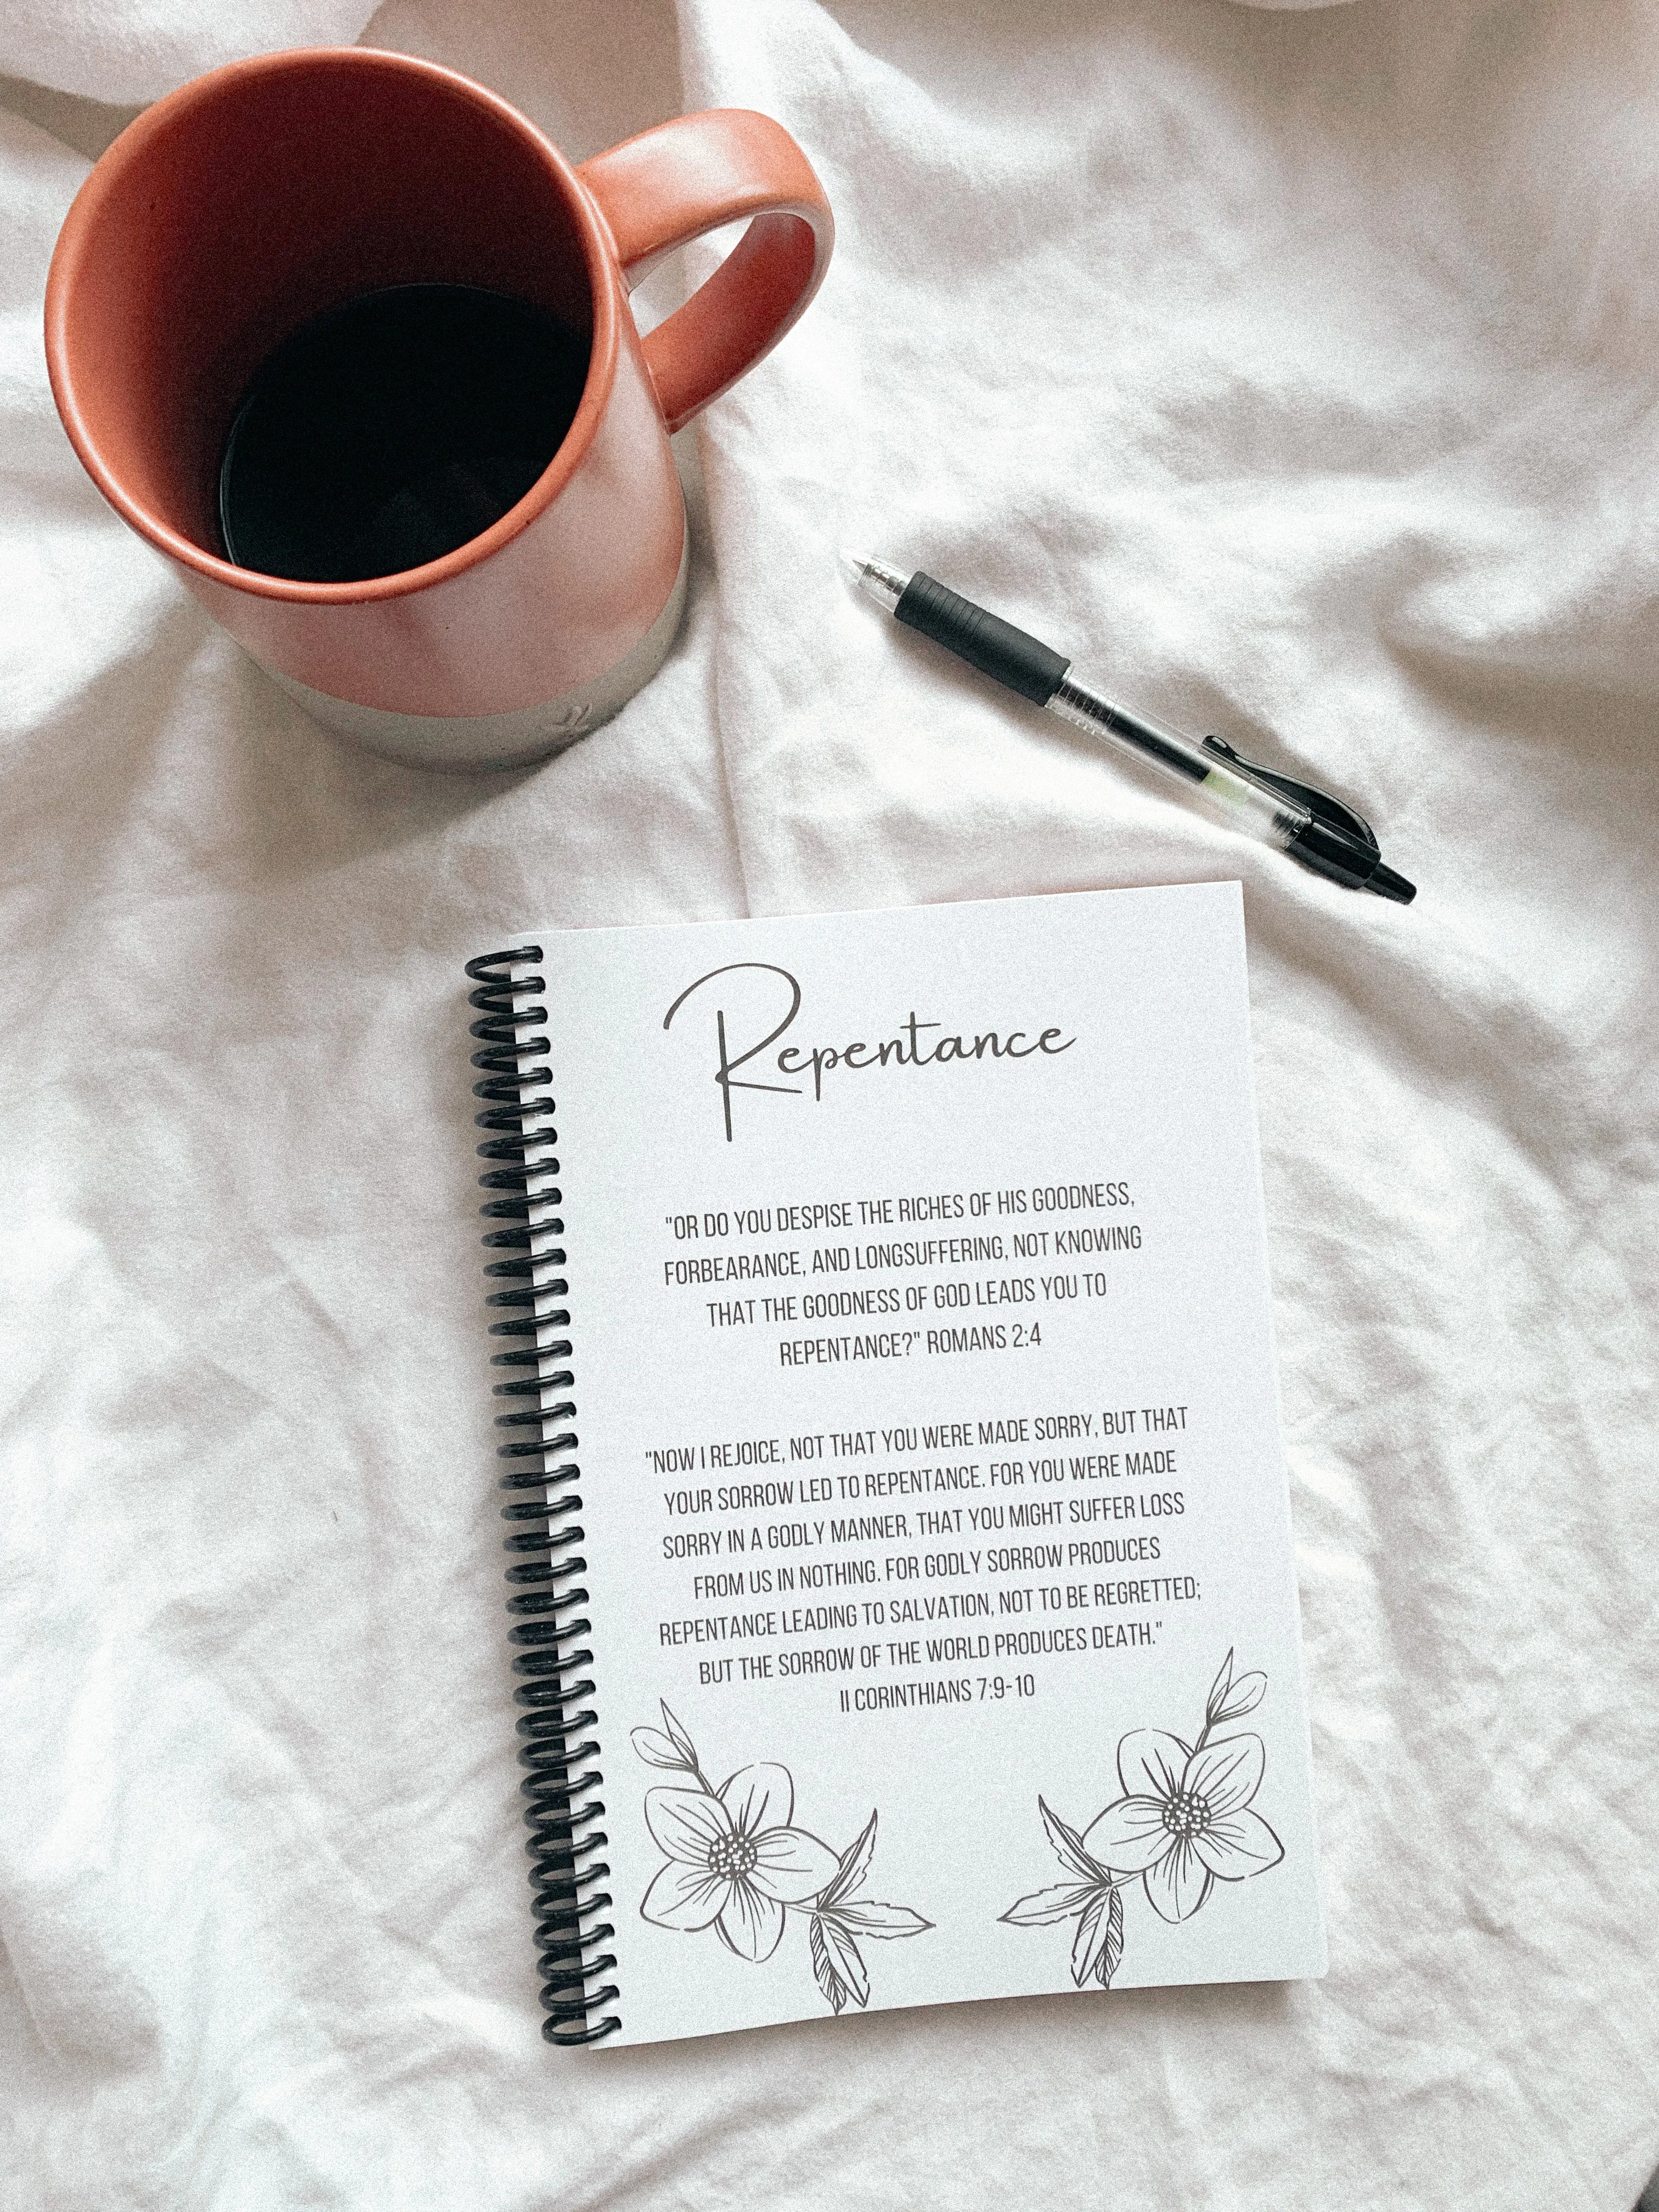 Repentance
"OR DO YOU DESPISE THE RICHES OF HIS GOODNESS,
FORBEARANCE, AND LONGSUFFERING, NOT KNOWING
THAT THE GOODNESS OF GOD LEADS YOU TO
REPENTANCE?" ROMANS 2:4
"NOW I REJOICE, NOT THAT YOU WERE MADE SORRY, BUT THAT
YOUR SORROW LED TO REPENTANCE. FOR YOU WERE MADE
SORRY IN A GODLY MANNER, THAT YOU MIGHT SUFFER LOSS
FROM US IN NOTHING. FOR GODLY SORROW PRODUCES
REPENTANCE LEADING TO SALVATION, NOT TO BE REGRETTED;
BUT THE SORROW OF THE WORLD PRODUCES DEATH."
II CORINTHIANS 7:9-10